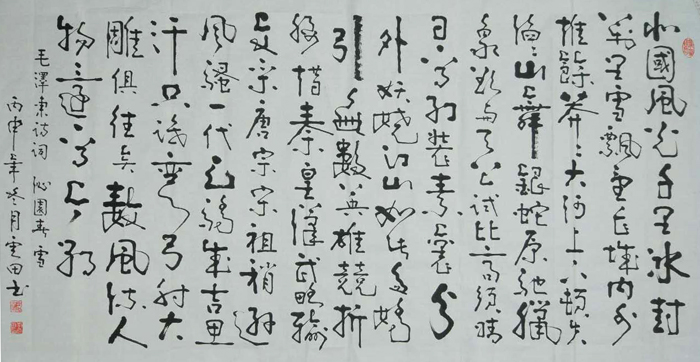 北國風光千里冰封
萬里雪飄望長城內外
惟餘莽々大河上下頓失
滔々山舞銀蛇原馳臘
象欲與天公試比高須晴
日看紅裝素裹分
外妖嬈江山如此多嬌
引無數英雄競折
腰惜秦皇漢武略輸
文采唐宗宋祖稍遜
風騷一代天驕成吉思
汗只識彎弓射大
雕俱往矣數風流人
物還看今朝
毛澤東詩詞 沁園春雪
丙申年冬月雲田書